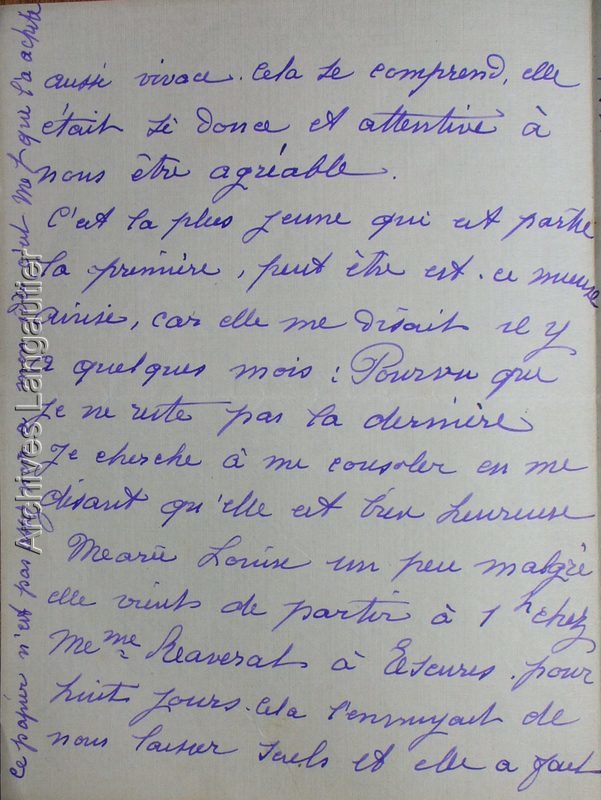 aussi vivace. Cela se comprend, elle
était si douce et attentive à
nous être agréable.
C'est la plus jeune qui est partie
la première, peut être est-ce mieux
ainsi, car elle me disait il y
a quelques mois : Pourvu que
je ne reste pas la dernière
Je cherche à me consoler en me
disant qu'elle est bien heureuse
Marie Louise un peu malgré
elle vient de partir à 1h chez
Mme à Escures. pour
huit jours. Cela l'ennuyait de
nous laisser seuls et elle a fait
ce papier n'est pas que l'a acheté
Archives Langautier